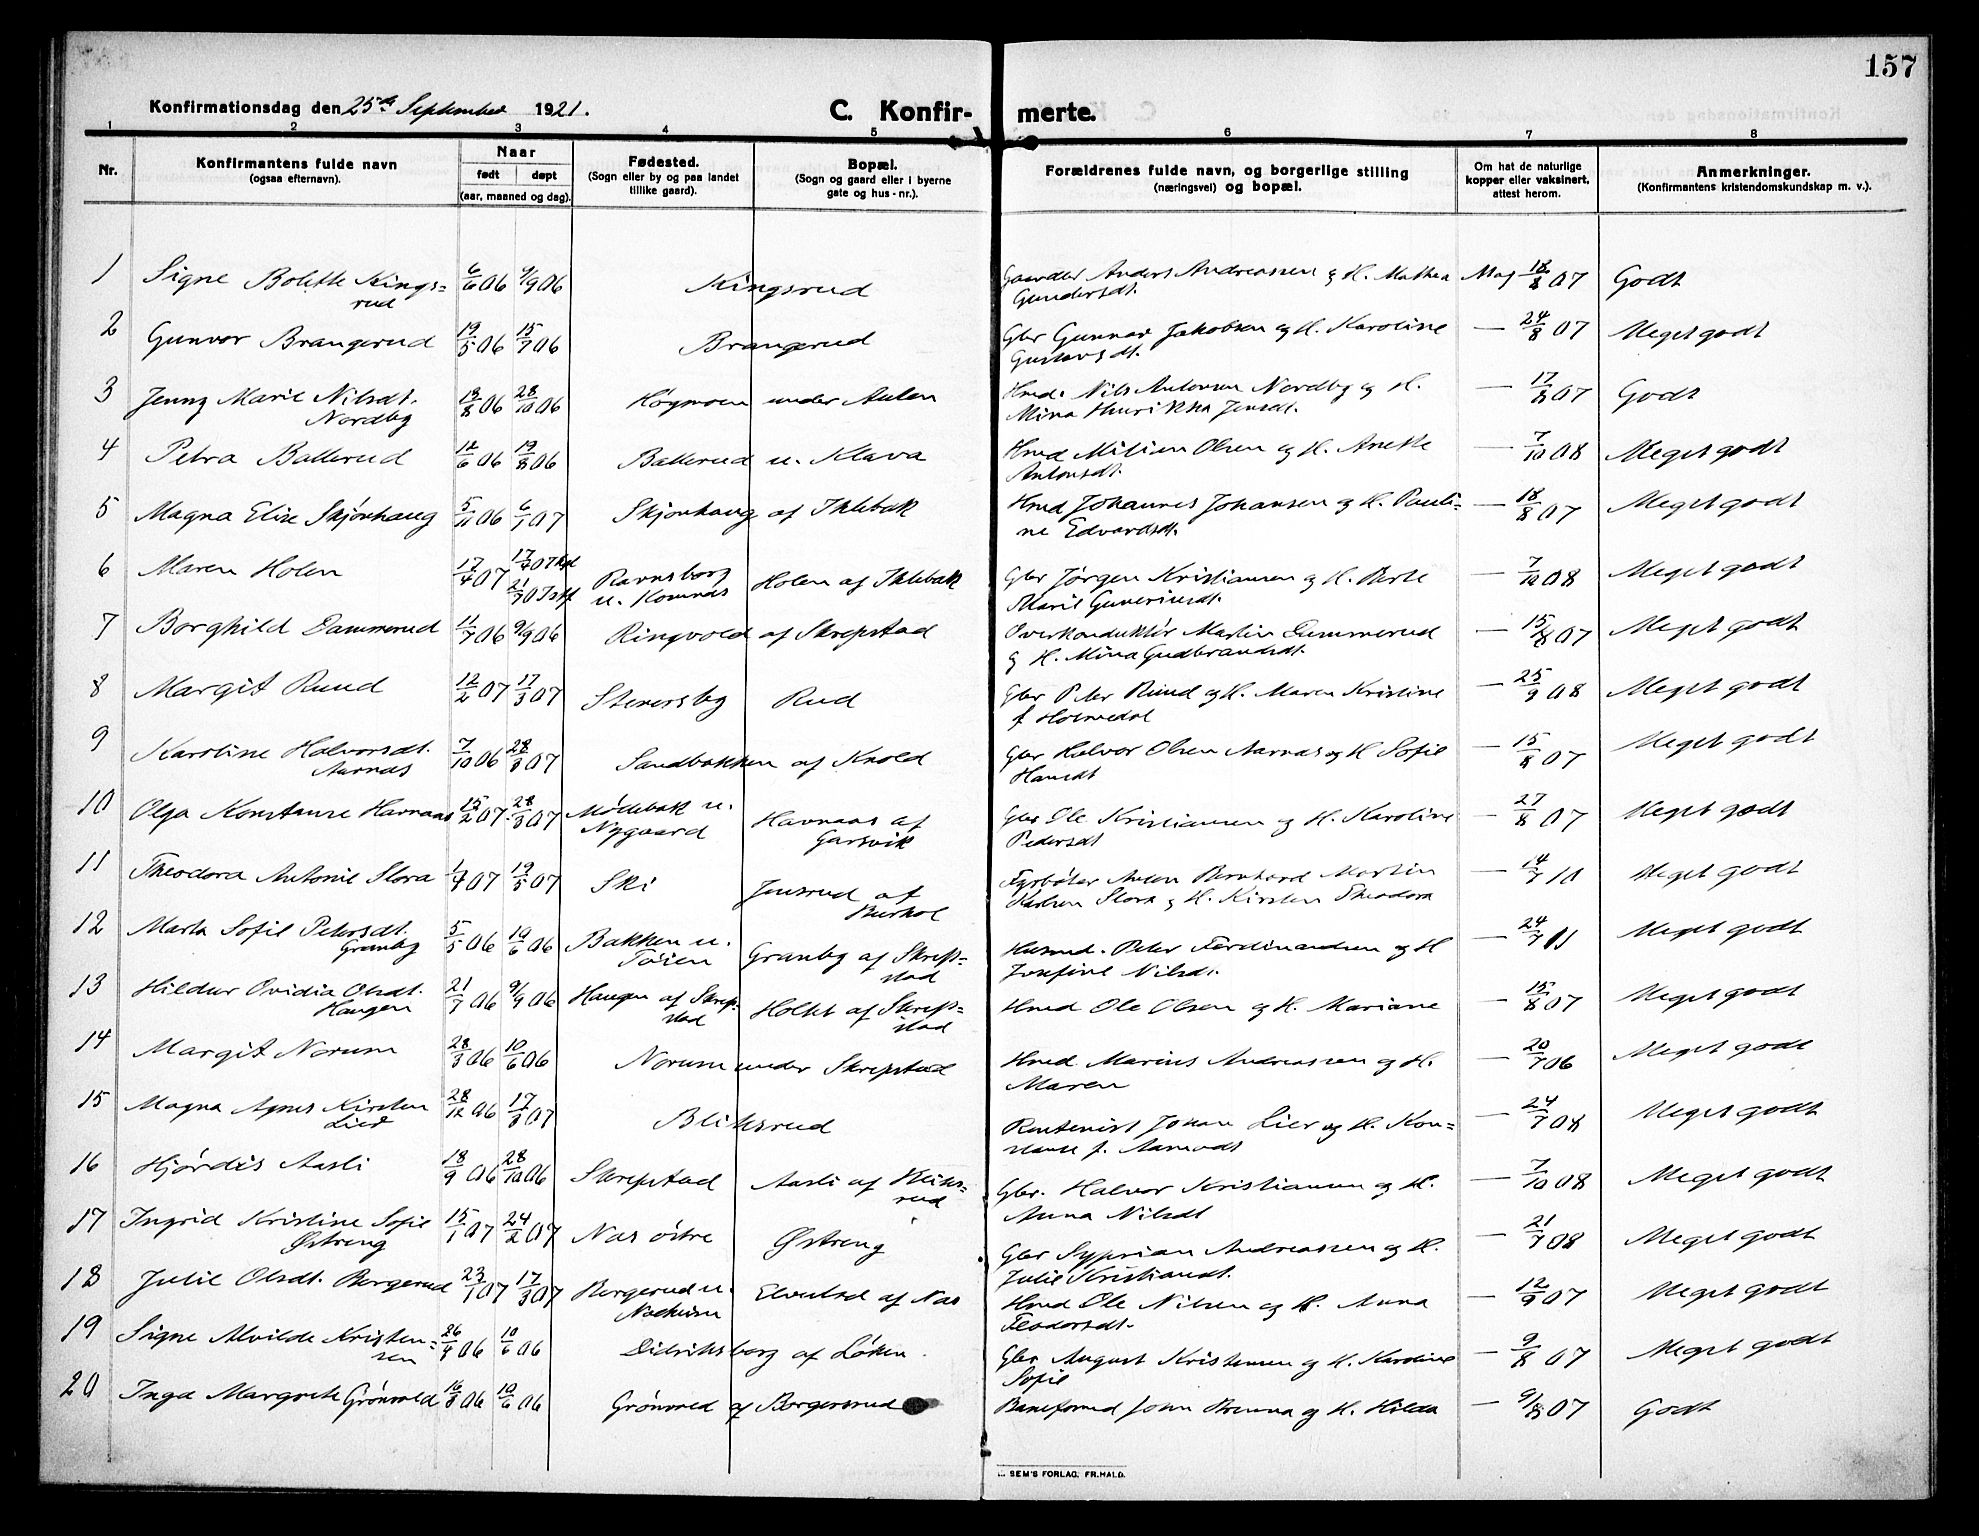 157
Konfirmationsdag den 25de September 1921.
C. Konfir-merte.
1 2 3 4 5 6 7 8
Nr.
Konfirmantens fulde navn
(ogsaa efternavn).
Naar
født døpt
(aar, maaned og dag).
Fødested.
(Sogn eller by og paa landet
tillike gaard).
Bopæl.
(Sogn og gaard eller i byerne
gate og hus-nr.).
Forældrenes fulde navn, og borgerlige stilling
(næringsvei) og bopæl.
Om hat de naturlige
kopper eller vaksinert,
attest herom.
Anmerkninger.
(Konfirmantens kristendomskundskap m. v.).
1 Signe Bolette Kings= 6/6 06 9/9 06 Kingsrud Gaardbr Anders Andreassen g H. Mathea Mag 18/8 07 Godt
rud Gundersdt.
2 Gunvor Brangerud 19/5 06 15/7 06 Brangerud Gbr Gunnar Jakobsen og H. Karoline — 24/8 07 Meget godt
Gustavsdt.
3 Jenny Marie Nilsdt. 13/8 06 28/10 06 Høgmoen under Aulen Hmd. Nils Antonsen Nordby og H. — 17/8 07 Godt
Nordby Mina Henrikka Jensdt.
4 Petra Ballerud 12/6 06 19/8 06 Ballerud u. Klava Hmd Milian Olsen og H. Anette — 7/10 08 Meget godt
Antonsdt.
5 Magna Elise Skjønhaug 5/11 06 6/1 07 Skjønhaug af Ihlebak Hmd Johannes Johansen og H. Pauli= — 18/8 07 Meget godt
ne Edvardsdt.
6 Maren Holen 17/4 07 17/4 07 Ravnsborg Holen af Ihlebak Gbr Jørgen Kristiansen og H. Berte — 7/10 08 Meget godt
21/7 07 u. Komnæs Marie Guneriusdt.
7 Borghild Dammerud 11/7 06 9/9 06 Ringvold af Skrepstad Overkonduktør Martin Dammerud — 15/8 07 Meget godt
g H. Mina Gudbrandsdt.
8 Margit Ruud 12/2 07 17/3 07 Stenersby Rud Gbr Peter Ruud og H. Maren Kristine — 25/9 08 Meget godt
f. Holmedal
9 Karoline Halvorsdt. 7/10 06 28/3 07 Sandbakken af Knold Gbr Halvor Olsen Aarnas og H Sofie — 15/8 07 Meget godt
Aarnas Hansdt
10 Olga Konstanse Havnaas 15/2 07 28/3 07 Mødebak u. Havnaas af Gbr Ole Kristiansen og H. Karoline — 27/8 07 Meget godt
Nygaard Garsvik Pedersdt
11 Theodora Antonie Slora 1/4 07 19/5 07 Ski Jensrud af Fyrbøter Anton Bernhard Martin — 14/7 10 Meget godt
Karlsen Slora g H. Kirsten Theodora
12 Marta Sofie Petersdt. 5/5 06 10/6 06 Bakken u. Granby af Skrep= Husmd. Peter Ferdinandsen og H — 24/7 11 Meget godt
Granby Toien stad Josefine Nilsdt.
13 Hildur Ovidia Olsdt. 21/7 06 9/9 06 Haugen af Skrep= Holtet af Skrep= Hmd Ole Olsen og H. Mariane — 15/8 07 Meget godt
Haugen stad stad
14 Margit Norum 28/3 06 10/6 06 Norum under Skrepstad Hmd. Marius Andreassen og H. — 20/7 06 Meget godt
Maren
15 Magna Agnes Kirsten 28/12 06 17/3 07 Bliksrud Rentenist Johan Lier og H. Kon= — 24/7 08 Meget godt
Lier stanse f. Aamodt
16 Hjørdis Aasli 18/9 06 28/10 06 Skrepstad Aasli af Bliks= Gbr. Halvor Kristiansen og H. — 7/10 08 Meget godt
rud Anna Nilsdt
17 Ingrid Kristine Sofie 15/1 07 24/2 07 Nas østre Østreng Gbr Syprian Andreassen og H. — 21/7 08 Meget godt
Østreng Julie Kristiansdt.
18 Julie Olsdt. Bergerud 23/1 07 17/3 07 Bergerud u. Elvestad af Nas Hmd Ole Nilsen og H. Anna — 12/9 07 Meget godt
Fledorsdt.
19 Signe Alvilde Kristen= 26/4 06 10/6 06 Didriksborg af Løken. Gbr August Kristensen og H. Karoline — 9/8 07 Meget godt
sen Sofie
20 Inga Margrete Grønvold 16/3 06 10/6 06 Grønvold af Borgersrud Baneformd John Brenna og H. Hilda — 9/8 07 Godt
SEM'S FORLAG, FR.HALD.